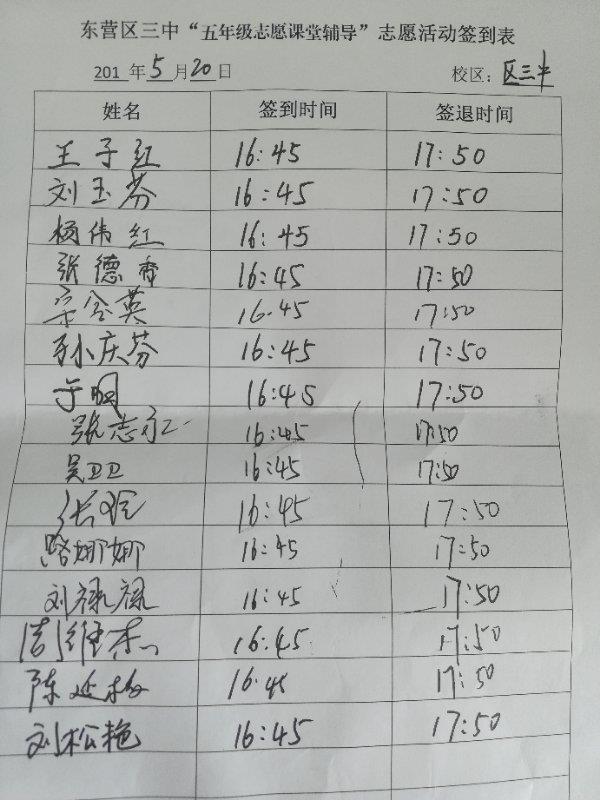 东营区三中“五年级志愿课堂辅导”志愿活动签到表
201 年 5 月 20 日 校区: 区三中
姓名 签到时间 签退时间
王子红 16:45 17:50
刘玉芬 16:45 17:50
杨伟红 16:45 17:50
张德香 16:45 17:50
宋金英 16.45 17:50
孙庆芬 16:45 17:50
于明 16:45 17:50
张志红 16:45 17:50
吴卫卫 16:45 17:50
16:45 17:50
路娜娜 16:45 17:50
刘禄禄 16:45 17:50
16:45 17:50
陈延梅 16.45 17:50
刘松艳 16:45 17:50